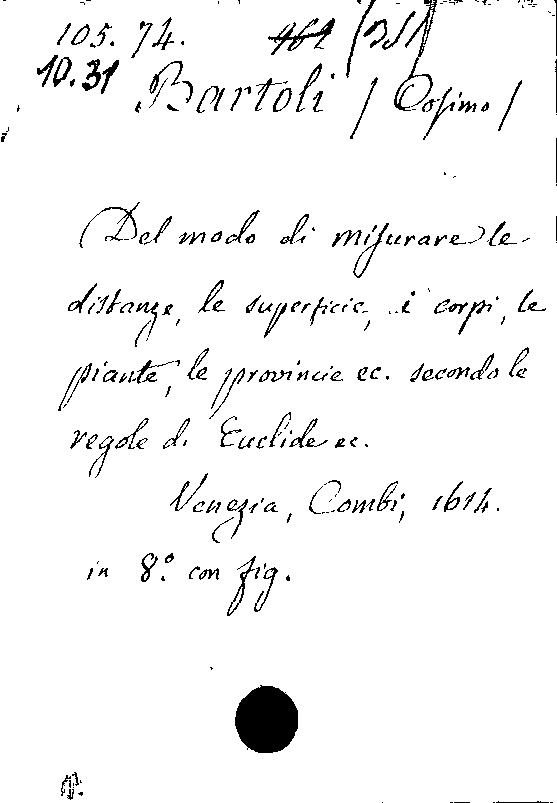 105. 74.
10.31
Bartoli / Cosimo /
Del modo di misurare le
distanze, le superficie, i corpi, le
piante, le provincie ec. secondo le
regole di Euclide ec.
Venezia, Combi, 1614.
in 8.° con fig.